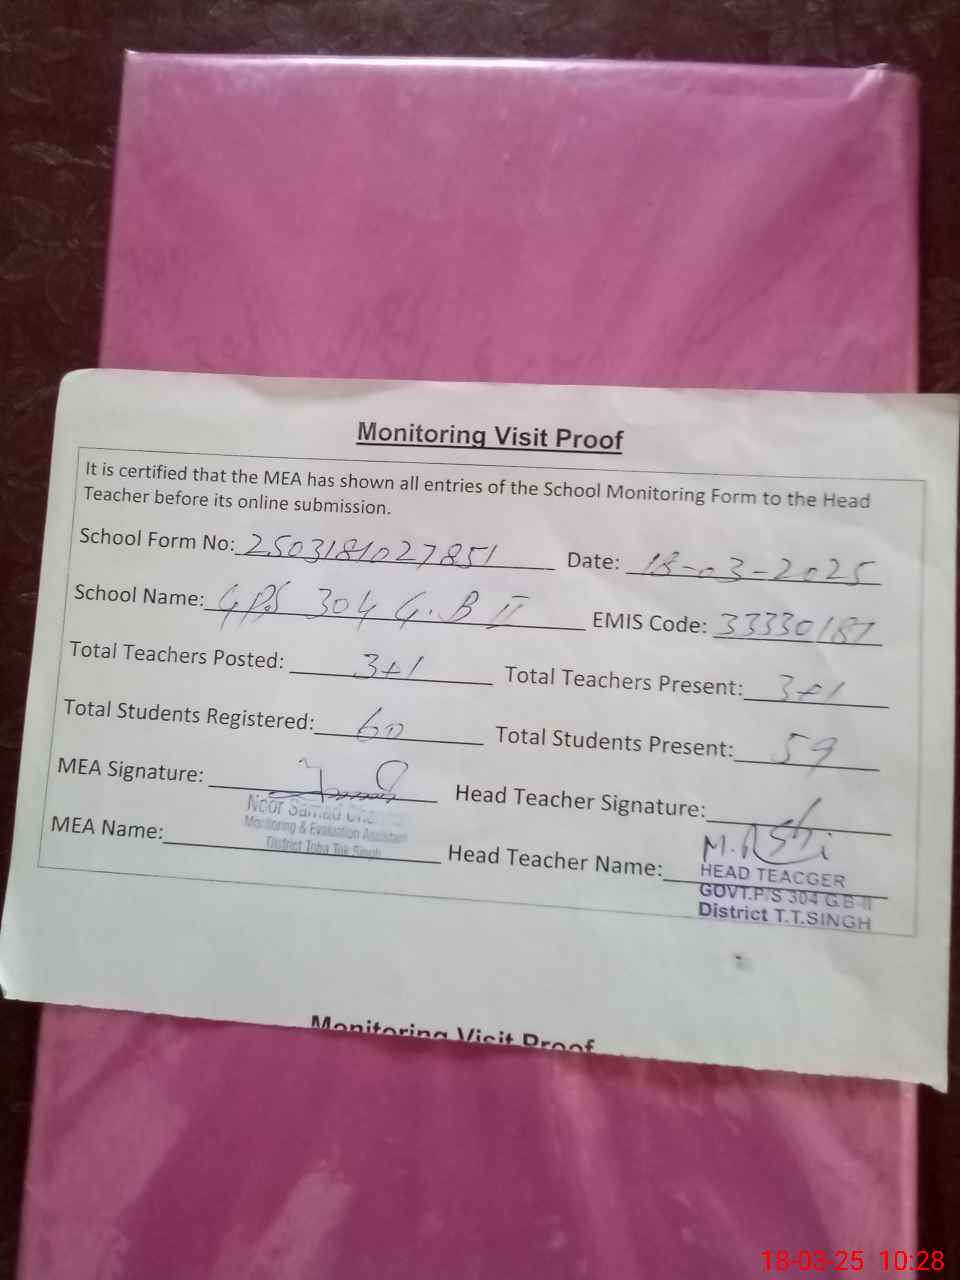 Monitoring Visit Proof
It is certified that the MEA has shown all entries of the School Monitoring Form to the Head
Teacher before its online submission.
School Form No: 2503181027851 Date: 18-03-2025
School Name: GPS 304 G.B II EMIS Code: 33330187
Total Teachers Posted: 3+1 Total Teachers Present: 3+1
Total Students Registered: 60 Total Students Present: 59
MEA Signature: Head Teacher Signature:
Noor Samad
Monitoring & Evaluation Assistant
District Toba Tek Singh
MEA Name: Head Teacher Name:
HEAD TEACGER
GOVT.P/S 304 G.B-II
District T.T.SINGH
Monitoring Visit Proof
18-03-25 10:28